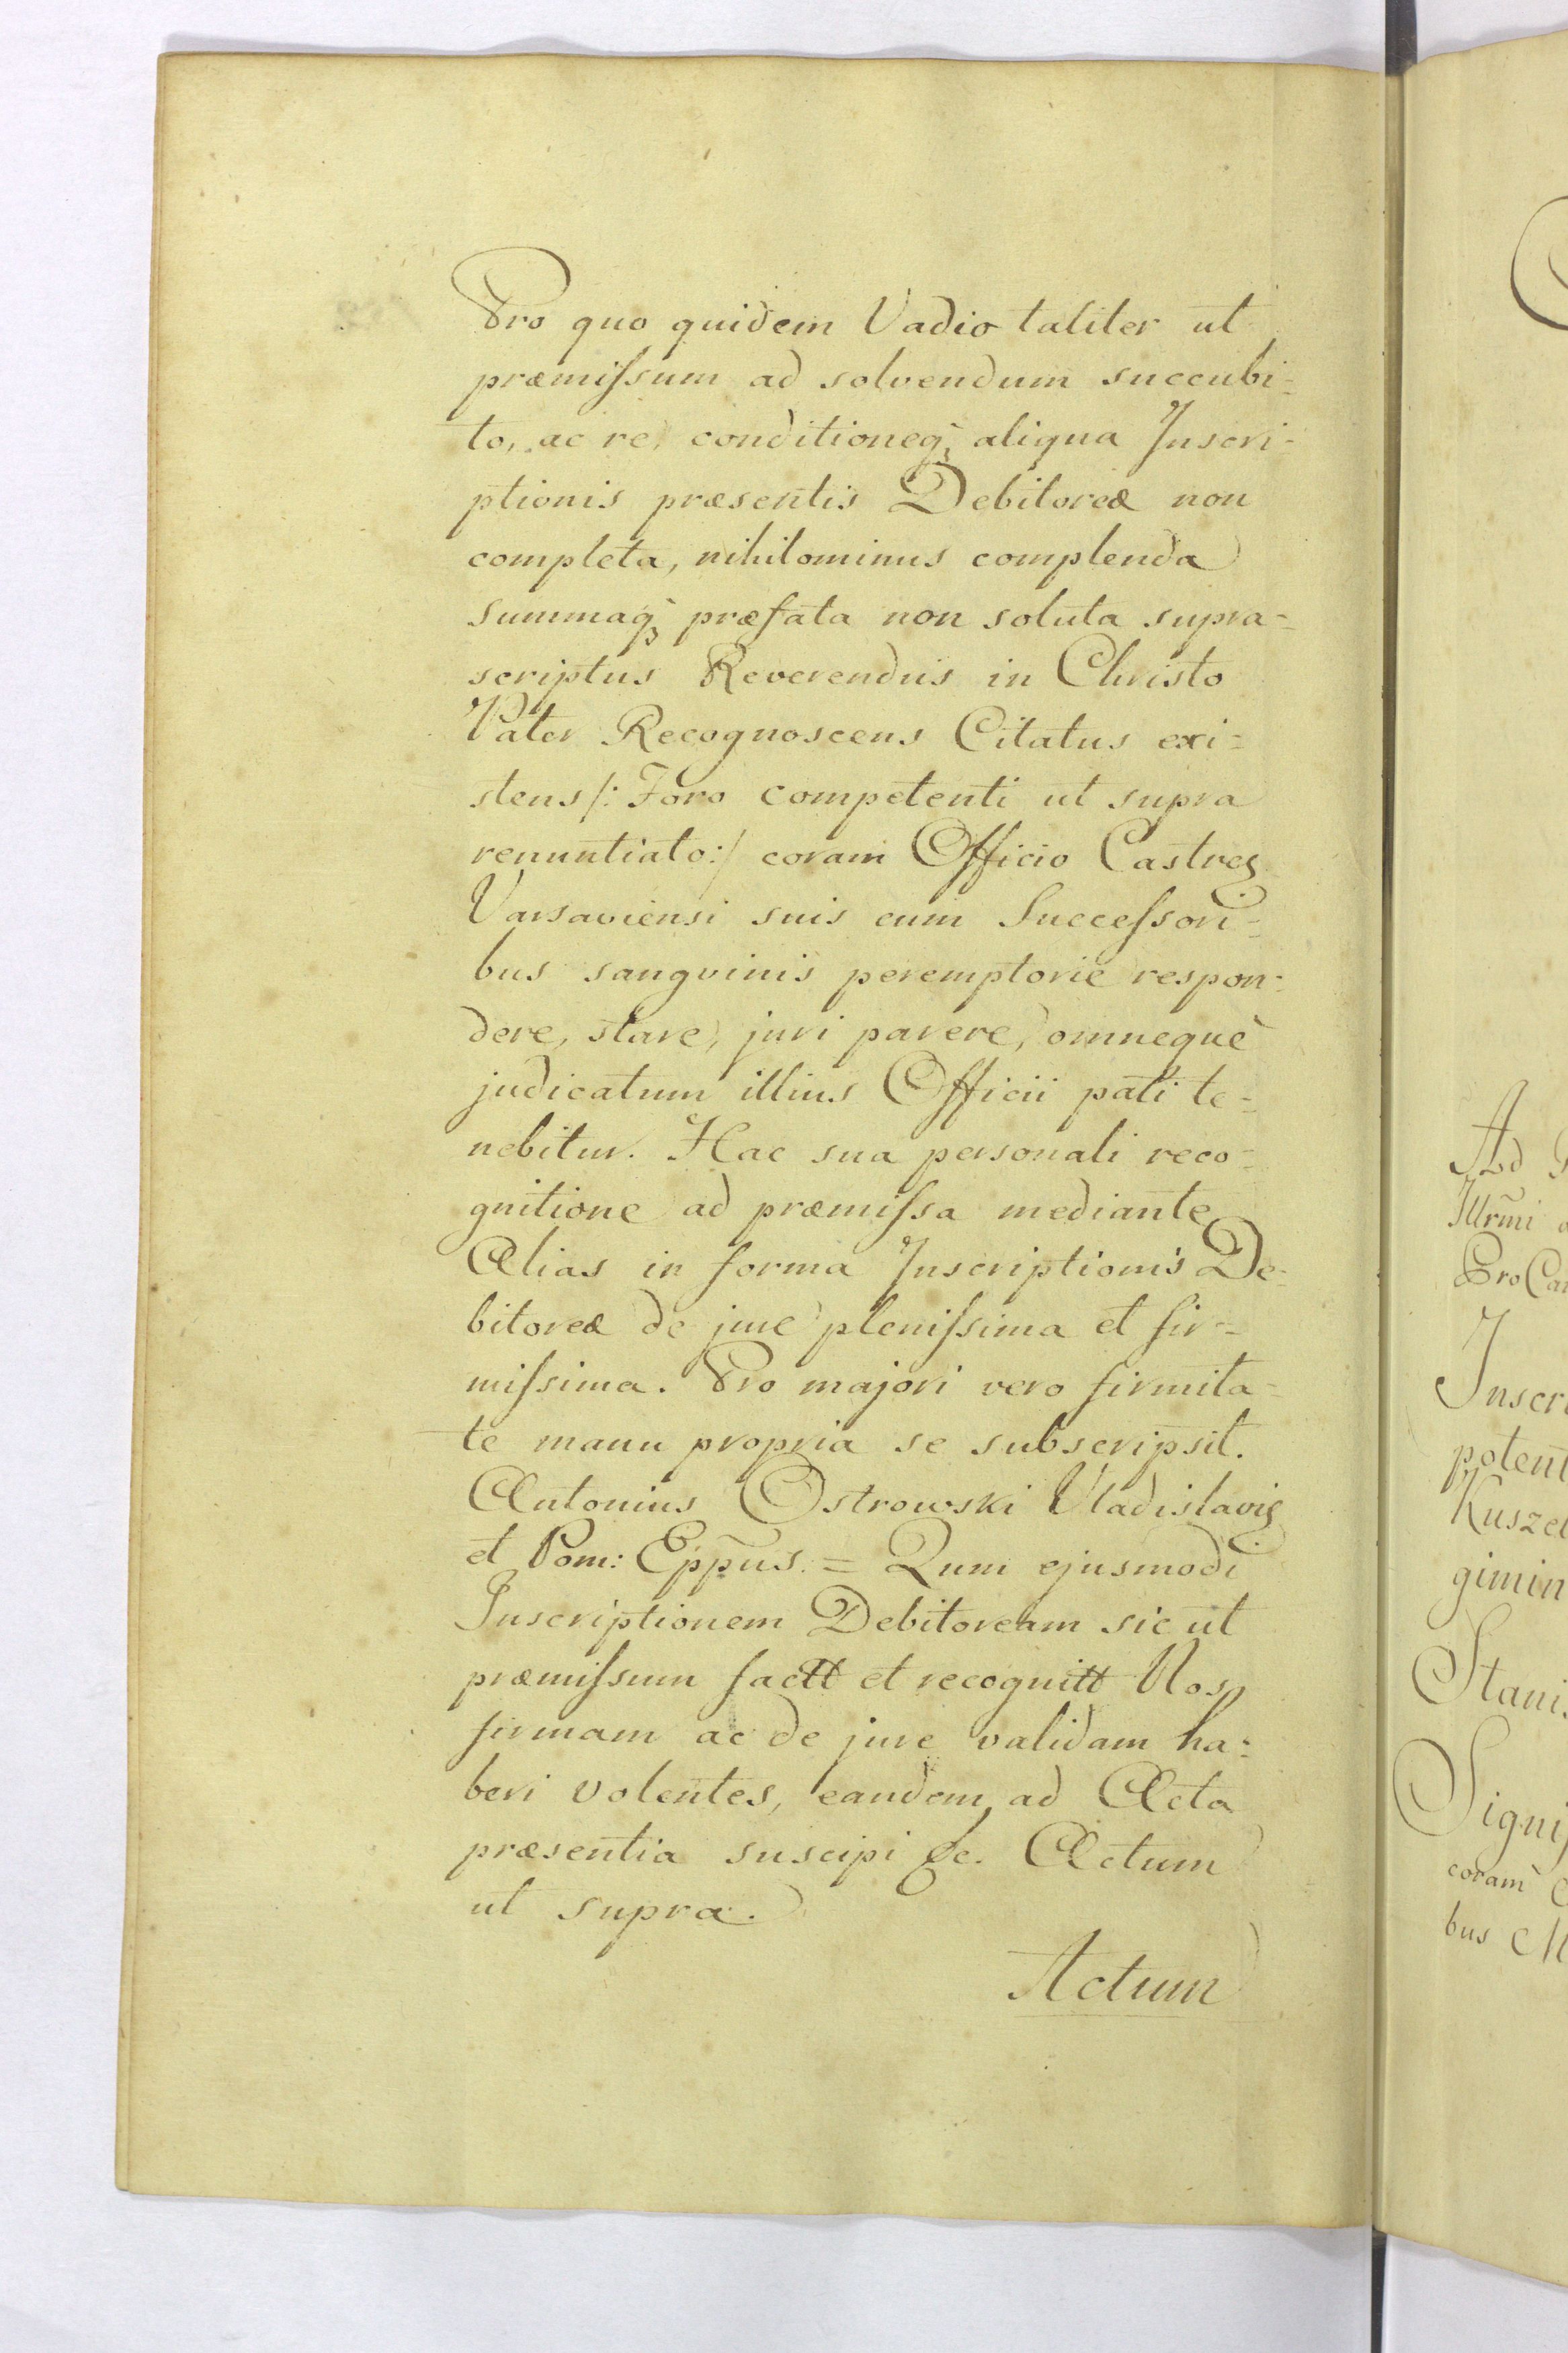 Pro quo quidem Vadio taliter ut
præmiſsum ad solvendum succubi=
to, ac re, conditioneq; aliqua Inscri=
ptionis præsentis Debitoreæ non
completa, nihilominus complenda
summaq; præfata non soluta supra=
scriptus Reverendus in Christo
Pater Recognoscens Citatus exi=
stens /: Foro competenti ut supra
renuntiato :/ coram Officio Castreş
Varsaviensi suis cum Succeſsori=
bus sangvinis peremptorie respon=
dere, stare, juri parere, omneque
judicatum illius Officii pati te=
nebitur. Hac sua personali reco=
gnitione ad præmiſsa mediante
Alias in forma Inscriptionis De=
bitoreæ de jure pleniſsima et fir=
miſsima. Pro majori vero firmita=
te manu propria se subscripsit.
Antonius Ostrowski Vladislaviş
et Pom: Eppūs. = Qum ejusmodi
Inscriptionem Debitoream sic ut
præmiſsum factt et recognitt Nos
firmam ac de jure validam ha=
beri volentes, eandem ad Acta
præsentia suscipi &c. Actum
ut supra.
Actum
Ad
Illrm̃i
Pro
Inscri
potent
Kusze
gimin
Stanis
Signif
coram
bus M